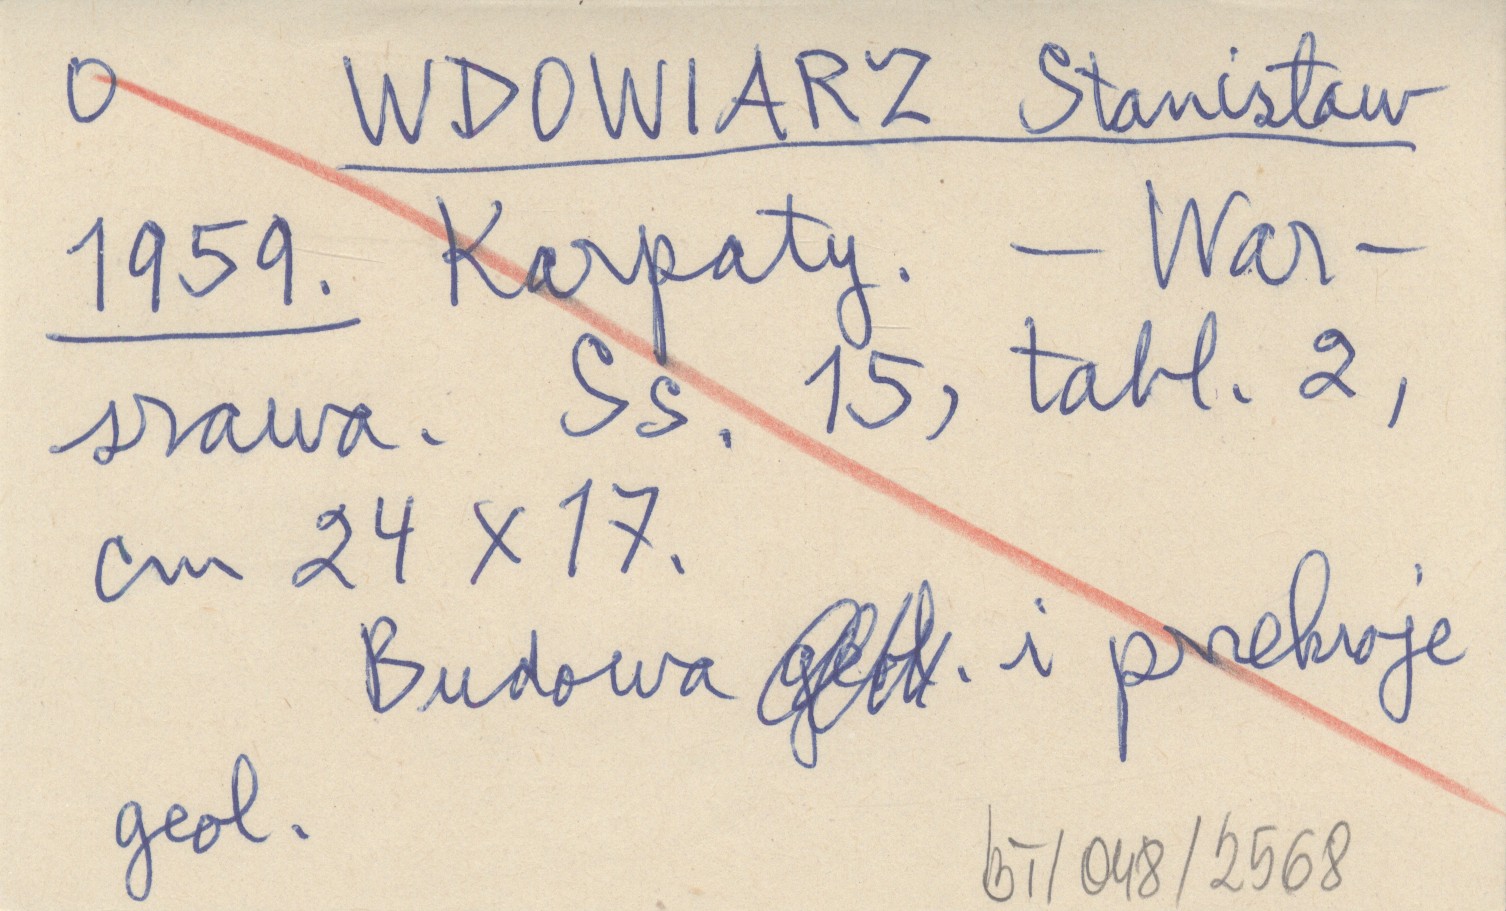 O WDOWIARZ Stanisław
1959. Karpaty. — War-
szawa. Ss. 15, tabl. 2,
cm 24 x 17.
Budowa i przekroje
geol.
BI/048/2568